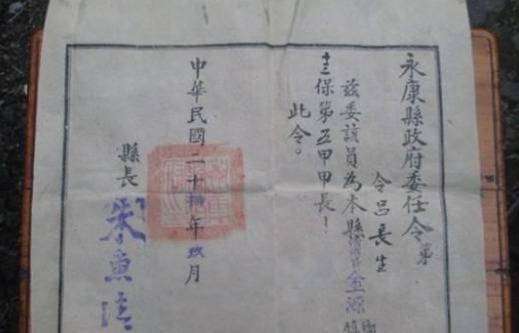 永康縣政府委任令 第
令呂長生
茲委該員為本縣金源
十三保第五甲甲長！
此令。
縣長 朱惠清
中華民國二十 年 玖月